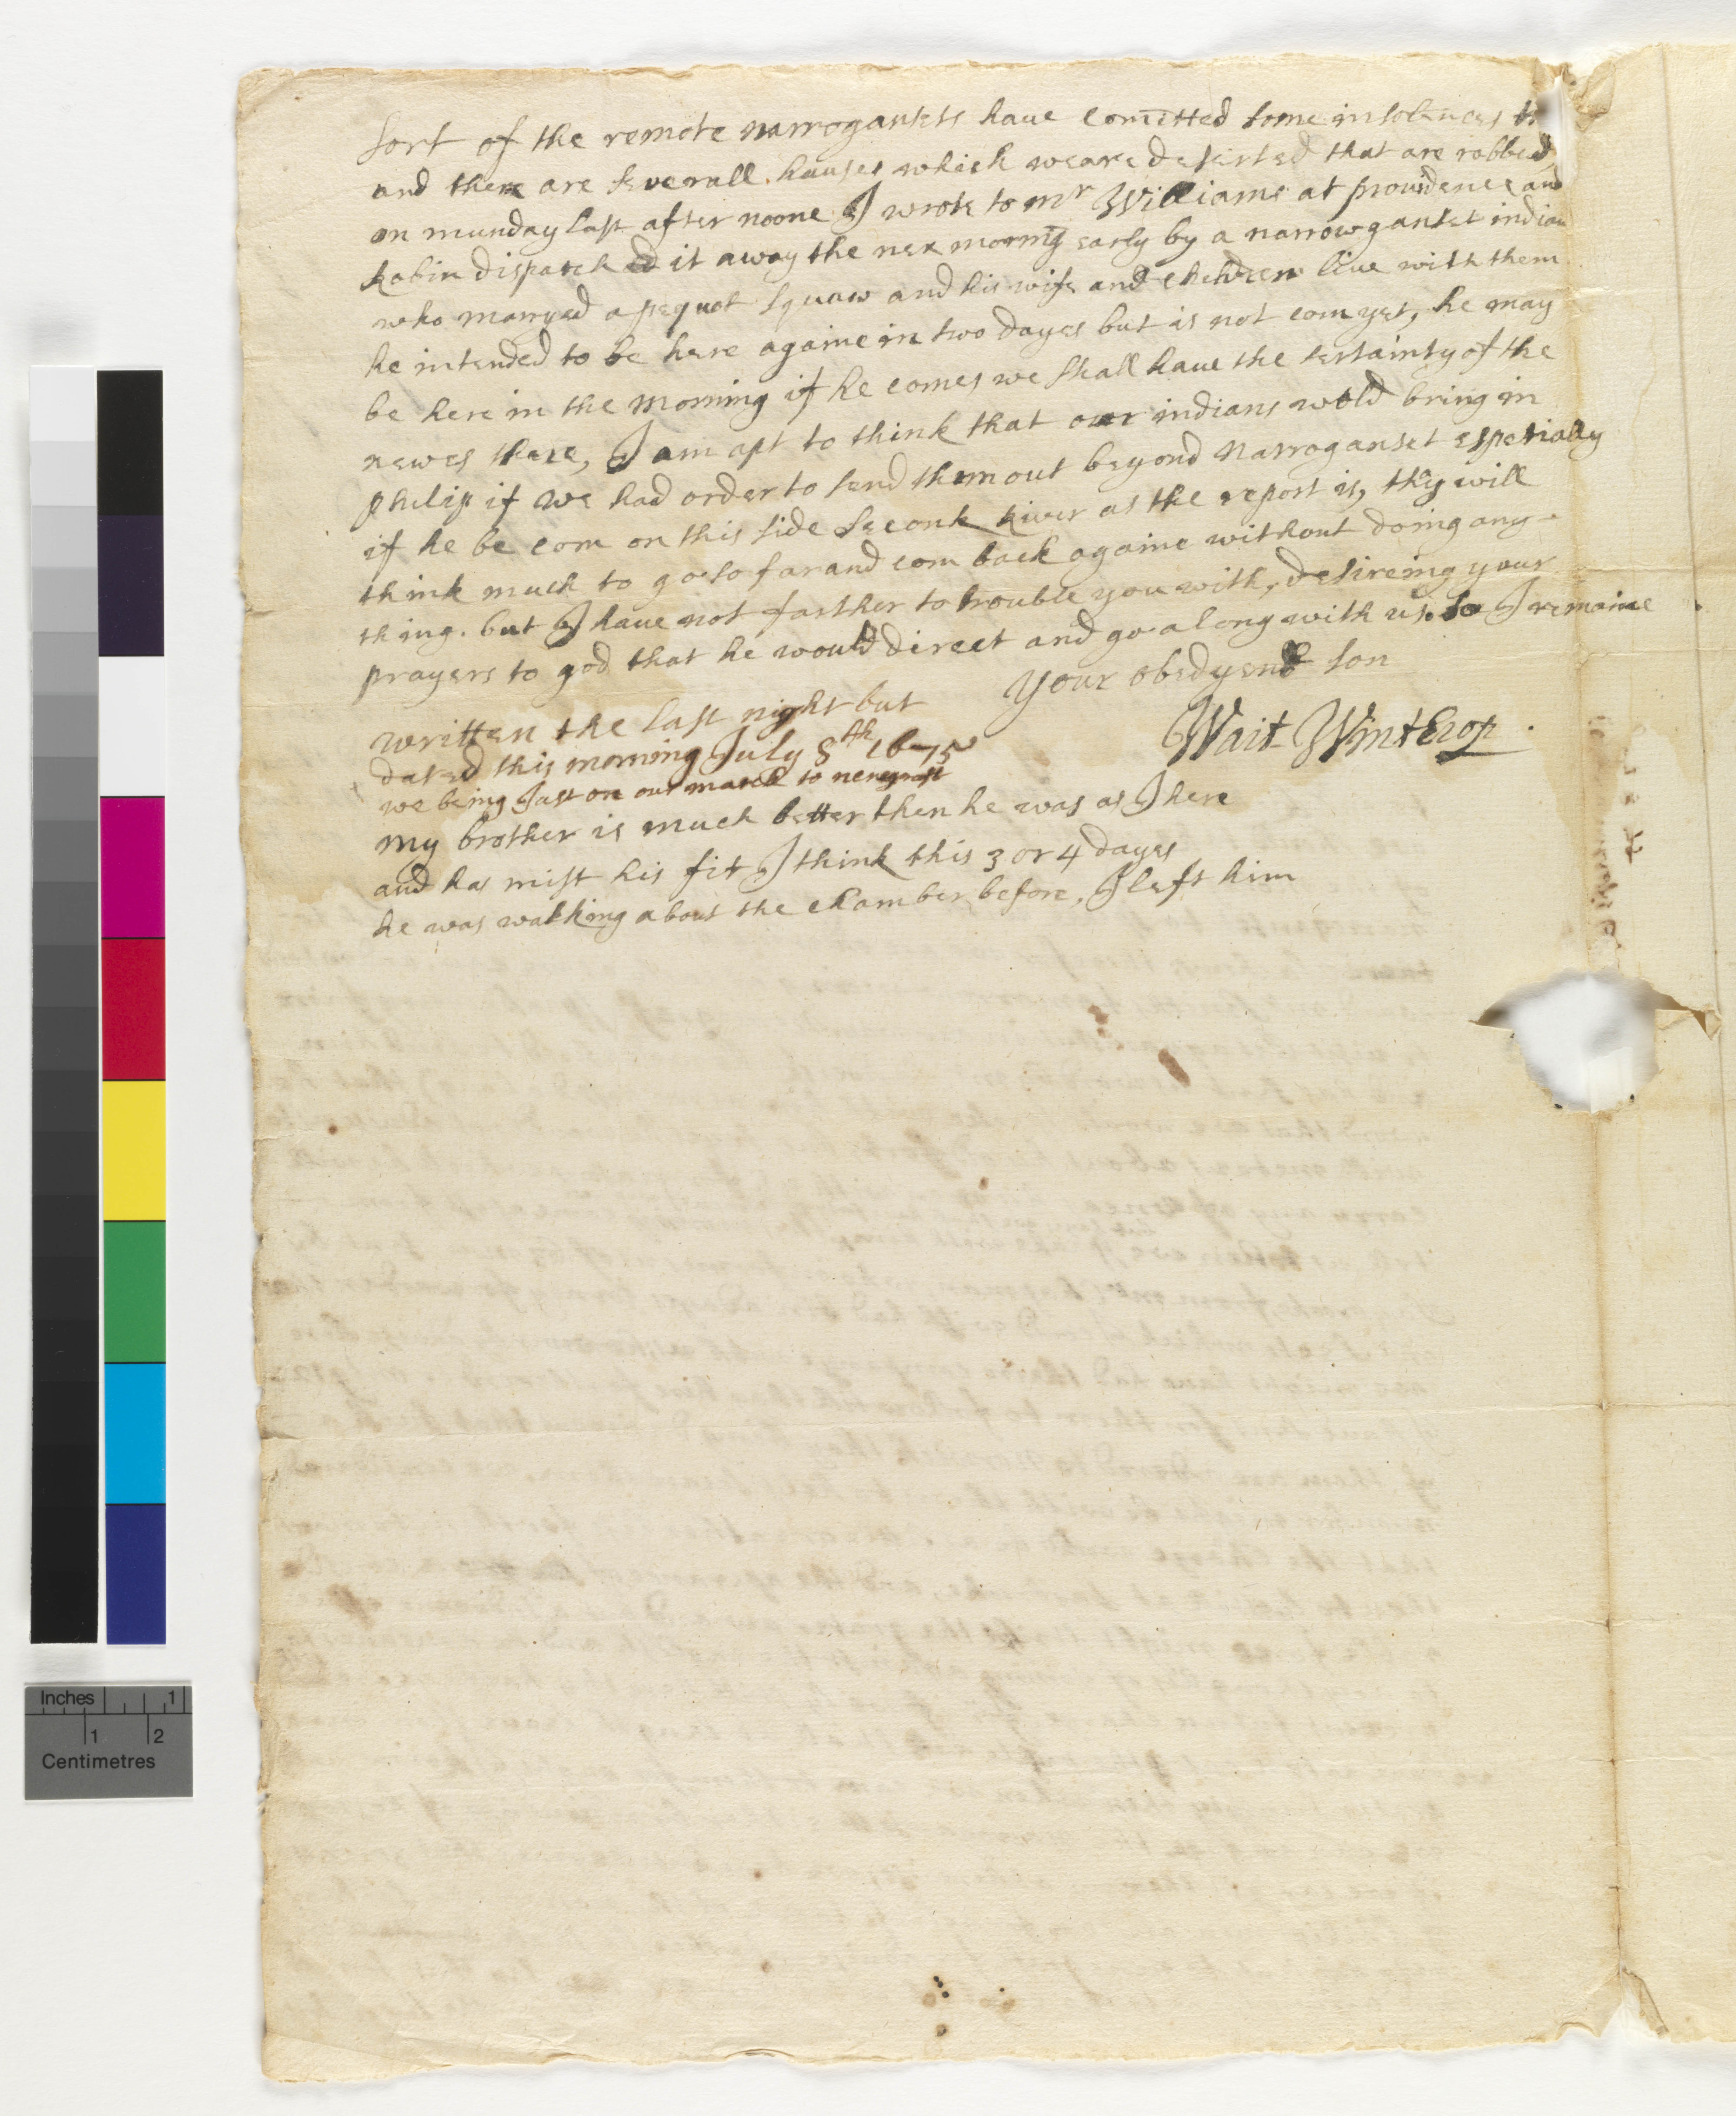 sort of the remote narrogansets haue comitted some insolences
and there are seuerall houses which weare desarted that are robbed
on munday last after noone I wrote to mr Williams at prouidence and
Robin dispatched it away the nex morni͞g early by a narrowganset indian
who marryed a pequot squaw and his wife and children liue with them
he intended to be here againe in two dayes but is not com yet, he may
be here in the morning if he comes we shall haue the sertainty of the
newes there, I am apt to think that our indians wold bring in
philip if we had order to send them out beyond Narroganset espetially
if he be com on this side Seconk Riuer as the report is, thy will
think much to go so far and com back againe without doing any
thing. but I haue not farther to trouble you with, desireing your
prayers to god that he would direct and go along with us. so I remaine
Your obedyent son
Wait Winthrop.
written the last night but
dated this morning July 8th 1675
we being Just on our march to
my brother is much better then he was as I here
and has mist his fit I think this 3 or 4 dayes
he was walking about the chamber before, I left him
Inches 1
1 2
Centimetres